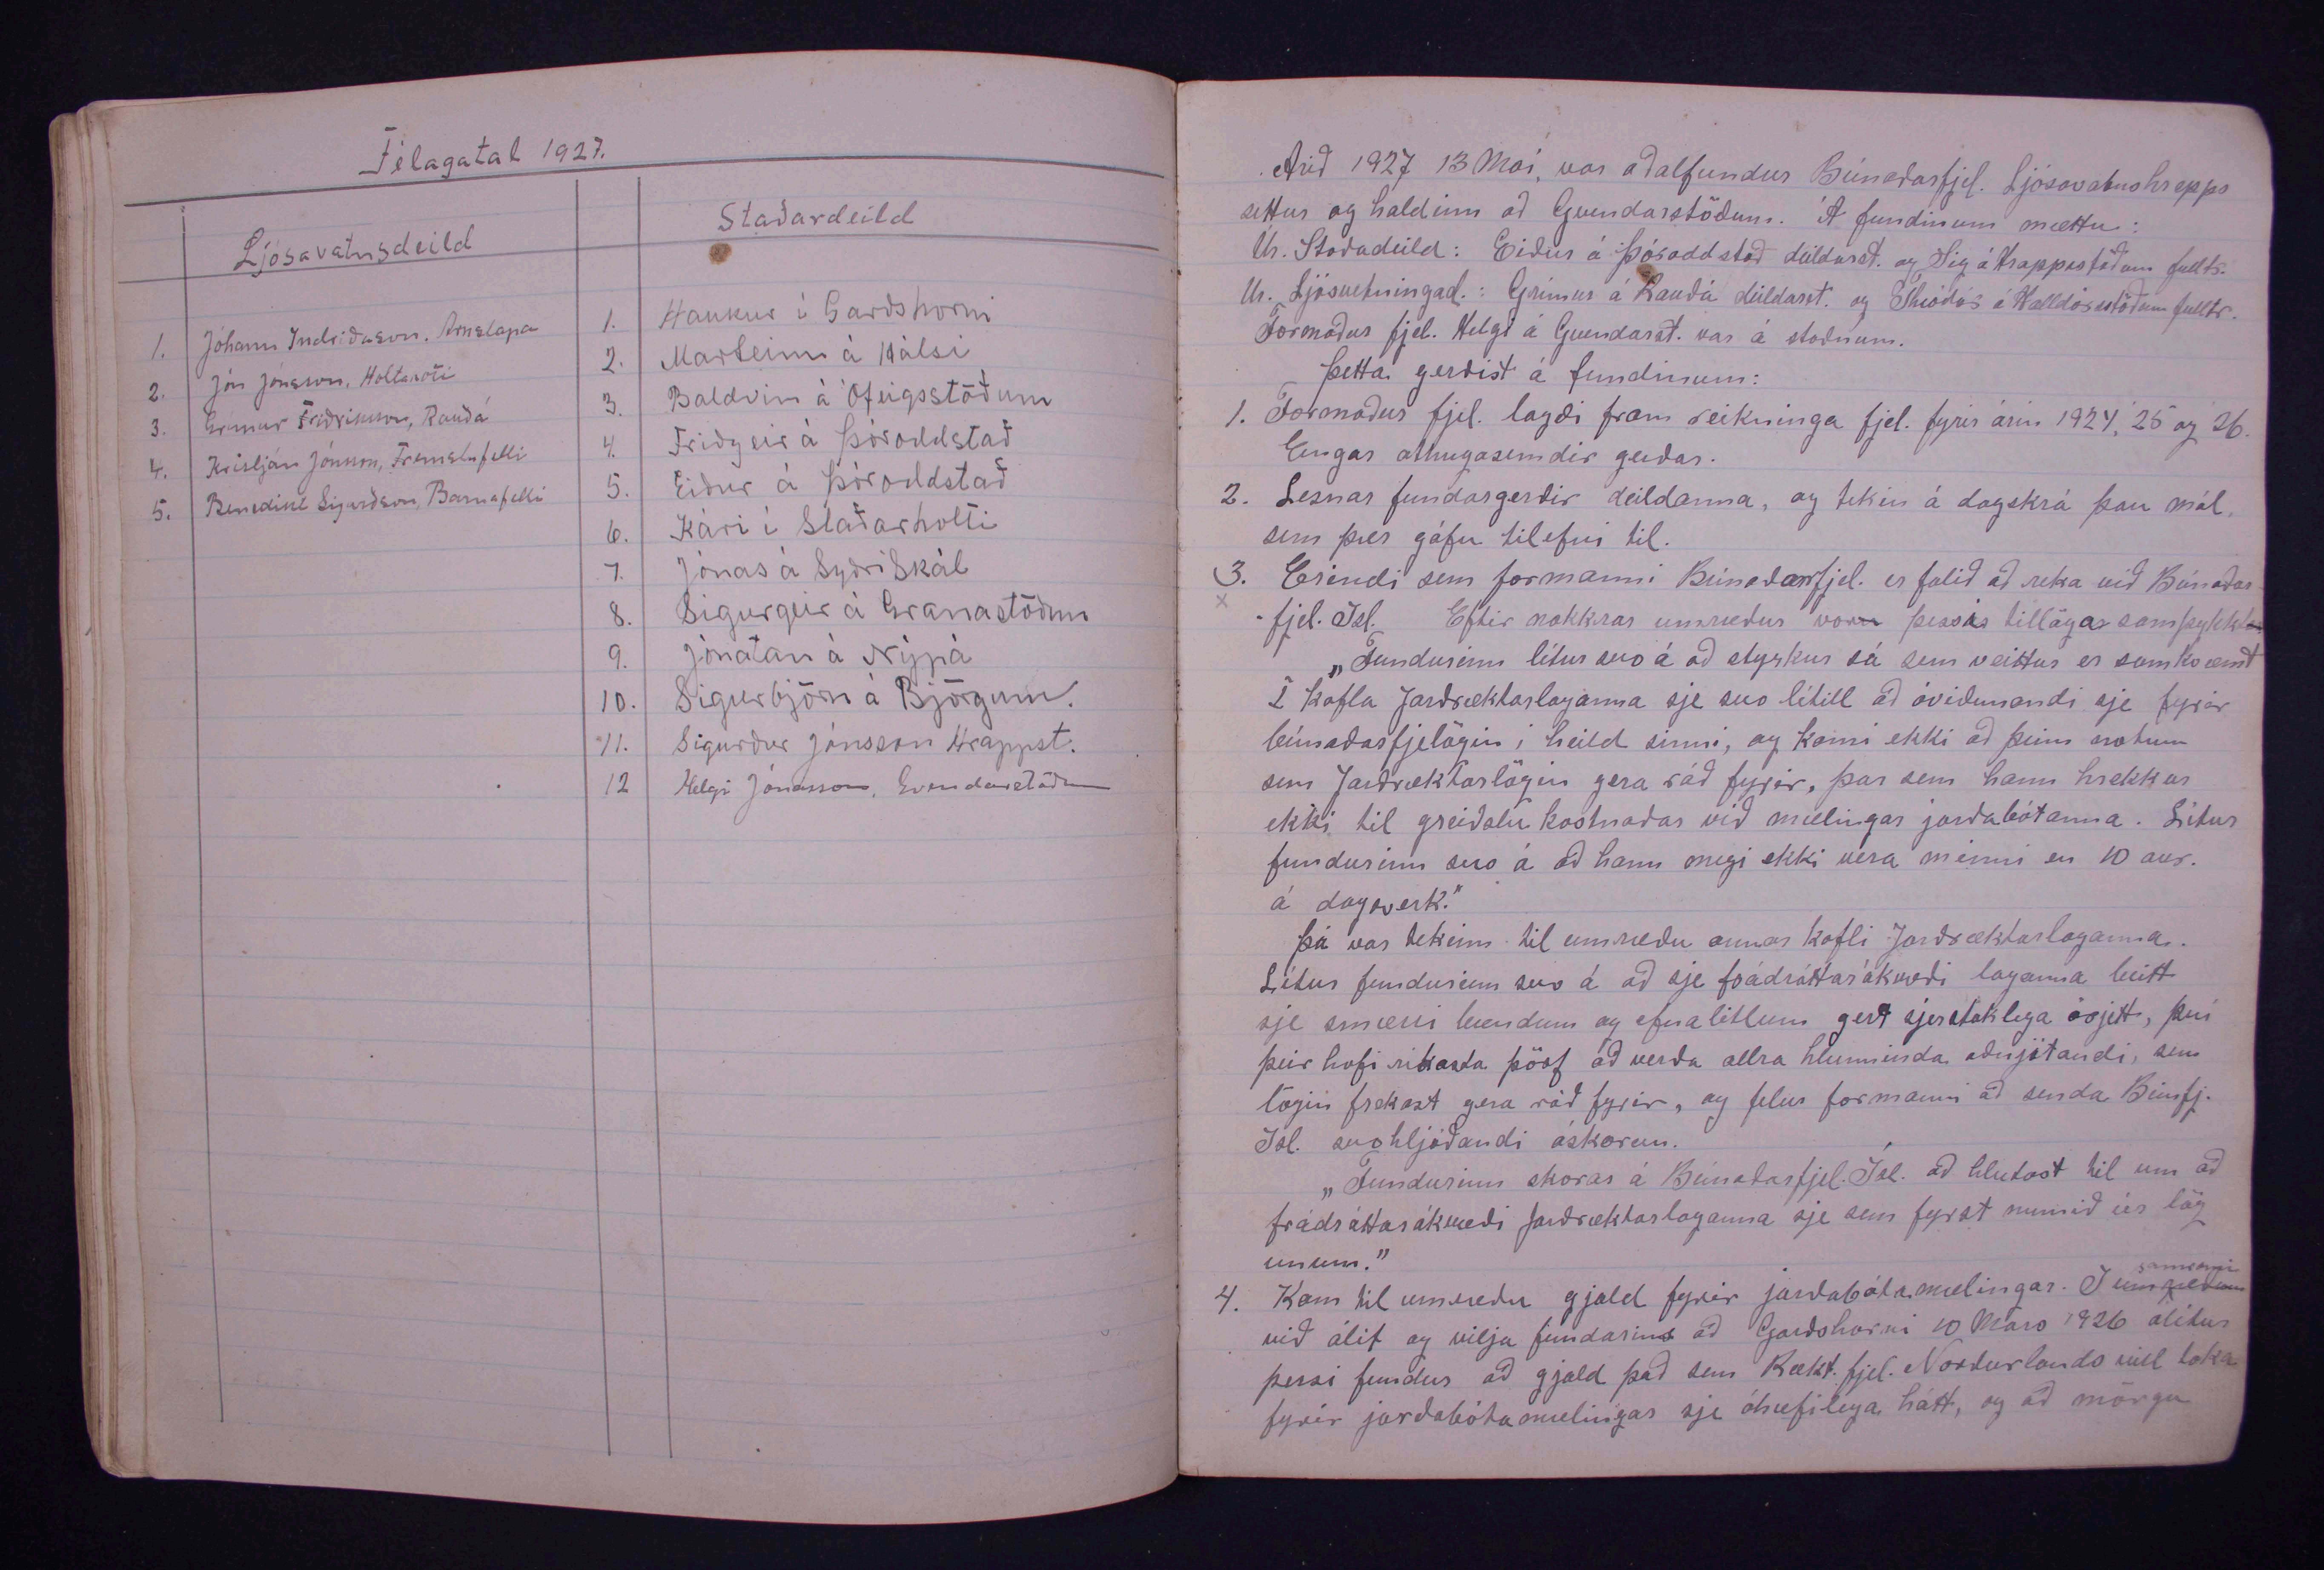 Félagatal 1927.
Ljósavatnsdeild
1. Jóhann Indriðason. Arnstapa
2. Jón Jónsson, Holtakoti
3. Grímur Friðriksson, Rauðá
4. Kristján Jónsson, Fremstafelli
5. Benedikt Sigurðsson, Barnafelli
Staðardeild
1. Haukur í Garðshorni
2. Marteinn á Hálsi
3. Baldvin á Ófeigsstöðum
4. Friðgeir á Þóroddstað
5. Eiður á Þóroddstað
6. Kári í Staðarholti
7. Jónas á SyðriSkál
8. Sigurgeir á Granastöðum
9. Jónatan á Nýpá
10. Sigurbjörn á Björgum.
11. Sigurður Jónsson Hrappst.
12 Helgi Jónasson, Gvendarstöðum
Árið 1927 13 Maí, var aðalfundur Búnaðarfjel. Ljósavatnshrepps
settur og haldinn að Gvendarstöðum. Á fundinum mættu:
Úr. Staðadeild: Eiður á Þóroddstað deildarst. og Sig á Hrappstöðum fulltr.
Úr. Ljósvetningad.: Grímur á Rauðá deildarst. og Theódór á Halldórsstöðum fulltr.
Formaður fjel. Helgi á Gvendarst. var á staðnum.
Þetta gerðist á fundinum:
1. Formaður fjel. lagði fram reikninga fjel. fyrir árin 1924, 25 og 26.
Engar athugasemdir gerðar.
2. Lesnar fundargerðir deildanna, og tekin á dagskrá þau mál,
sem þær gáfu tilefni til.
3. Erindi sem formanni Búnaðarfjel. er falið að reka við Búnaðar
x
-fjel. Ísl. Eftir nokkrar umræður voru þessar tillögar samþykktar
„Fundurinn lítur svo á að styrkur sá sem veittur er samkvæmt
I kafla Jarðræktarlaganna sje svo lítill að óviðunandi sje fyrir
búnaðarfjelögin í heild sinni, og komi ekki að þeim notum
sem Jarðræktarlögin gera ráð fyrir, þar sem hann hrekkur
ekki til greiðslu kostnaðar við mælingar jarðabótanna. Lítur
fundurinn svo á að hann megi ekki vera minni en 10 aur.
á dagsverk."
Þá var tekinn til umræðu annar kafli Jarðræktarlaganna.
Lítur fundurinn svo á að sje frádráttarákvæði laganna beitt
sje smærri bændum og efnalitlum gert sjerstaklega órjett, því
þeir hafi rikasta þörf að verða allra hlunninda aðnjótandi, sem
lögin frekast gera ráð fyrir, og felur formanni að senda Búnfj.
Ísl. svohljóðandi áskorun.
„Fundurinn skorar á Búnaðarfjel. Ísl. að hlutast til um að
frádráttarákvæði Jarðræktarlaganna sje sem fyrst numið úr lög
unum."
4. Kom til umræðu gjald fyrir jarðabótamælingar. Í umræðum samræmi
við álit og vilja fundarins að Garðshorni 10 Mars 1926 álítur
þessi fundur að gjald það sem Rækt. fjel. Norðurlands vill taka
fyrir jarðabótamælingar sje óhæfilega hátt, og að mörgu